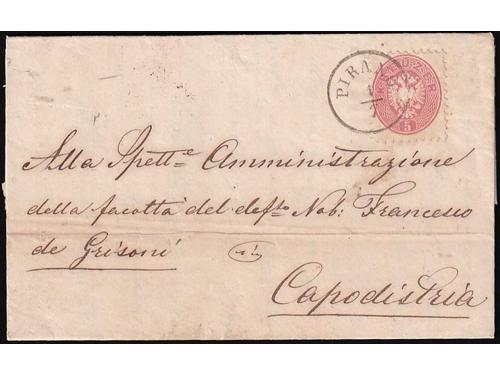 PIRANO
KREUZER
5
Alla Spett.e Amministrazione
della facoltá del def.to Nob: Francesco
de Grisoni
Capodistria